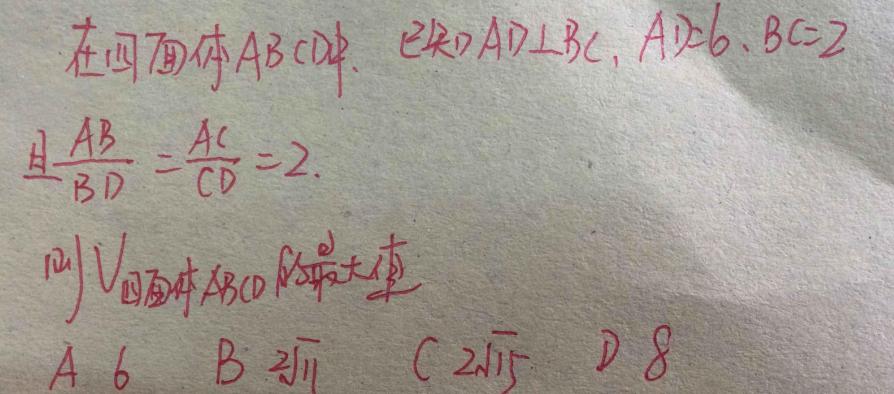 在四面体ABCD中、已知AD⊥BC,AD=6、BC=2
且AB/BD=AC/CD=2.
则V四面体ABCD的最大值
A 6 B 2√11 C 2√15 D 8